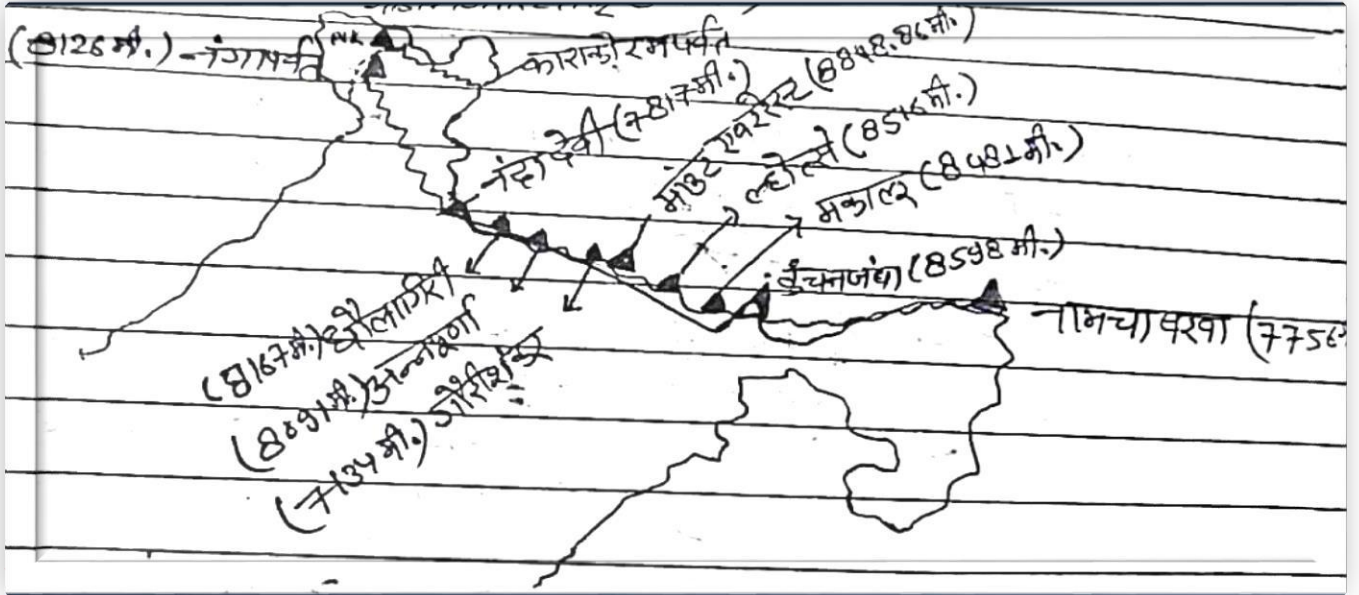 (8126 मी.) नंगापर्वत
काराकोरम पर्वत
नंदा देवी (7817 मी.)
माउंट एवरेस्ट (8848.86 मी.)
ल्होत्से (8516 मी.)
मकालू (8481 मी.)
कुंचनजंघा (8598 मी.)
नामचा बरवा (7756
(8167 मी.) धौलागिरी
(8091 मी.) अन्नपूर्णा
(7134 मी.) गौरीशंकर